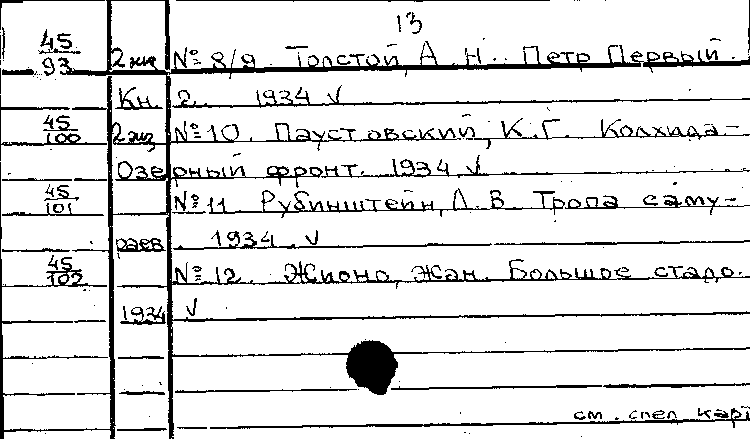 13
45/93 2 экз № 8/9. Толстой, А. Н. Петр Первый.
Кн. 2. 1934 V
45/100 2 экз № 10. Паустовский, К. Г. Колхида-
Озерный фронт. 1934 V
45/101 № 11 Рубинштейн, Л. В. Тропа саму-
раев. 1934. V
45/102 № 12. Жионо, Жан. Большое стадо.
1934 V
см. след карт